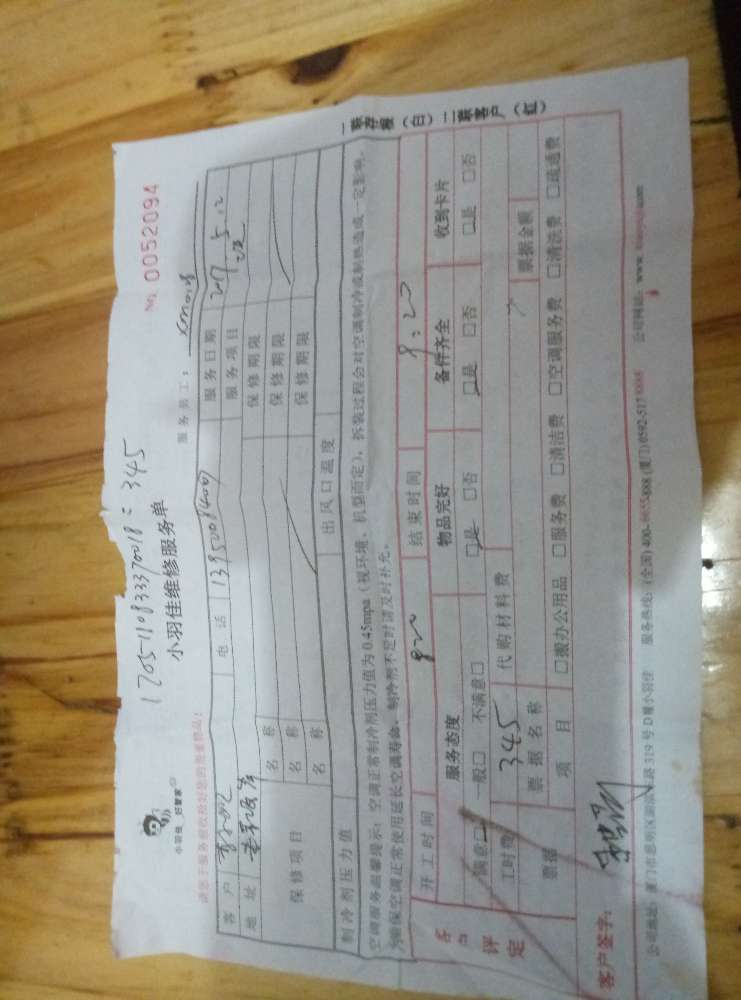 1705-110833370018=345
小羽佳 好管家
小羽佳维修服务单
No 0052094
服务员工:
客户 电话 服务日期 2017.5.12
地址 服务项目
保修项目 名称 保修期限
名称 保修期限
名称 保修期限
制冷剂压力值 出风口温度
空调服务温馨提示:空调正常制冷剂压力值为0.45mpa(视环境、机型而定),拆装过程会对空调制冷或制热造成一定影响,
为确保空调正常使用延长空调寿命,制冷剂不足时请及时补充。
开工时间 结束时间 9:20
客户评定 服务态度 物品完好 备件齐全 收到卡片
满意□ 一般□ 不满意□ □是 □否 □是 □否 □是 □否
工时费 345 代购材料费
票据 票据名称 票据金额
项目 □搬办公用品 □服务费 □清洁费 □空调服务费 □清洗费 □疏通费
客户签字:
公司地址:厦门市思明区 319号D幢小羽佳 服务热线:(全国)400- (厦门)0592-5178888 公司网站:www.
一联存根(白) 二联客户(红)